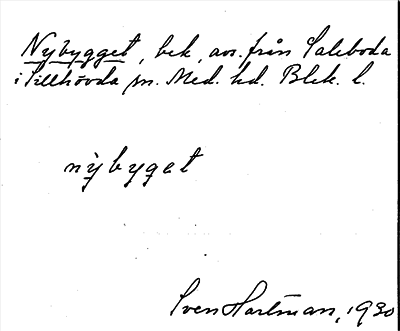 Nybygget, bek, avs. från Saleboda
i Tillhövda sn. Med. hd. Blek. l.
nỳbyget
Sven Hartman, 1930